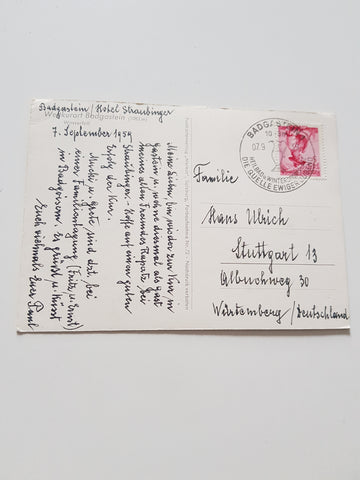 Badgastein / Hotel Straubinger
Weltkurort Badgastein
7. September 1959
Meine Lieben, bin wieder zur Kur in
Gastein u. wohne diesmal als Gast
meines alten Freundes
Straubinger. - Hoffe auf einen guten
Erfolg der Kur.
Muchi u. Grete sind dzt. bei
einer Familientagung (Fritz u. Ernst)
in Badgoisern. Es grüsst u. küsst
Euch vielmals Euer Paul
BADGASTEIN
10-
07.9
HEILBAD WINTERSPORT
DIE QUELLE EWIGER
Familie
Hans Ulrich
Stuttgart 13
Albuchweg 30
Württemberg / Deutschland